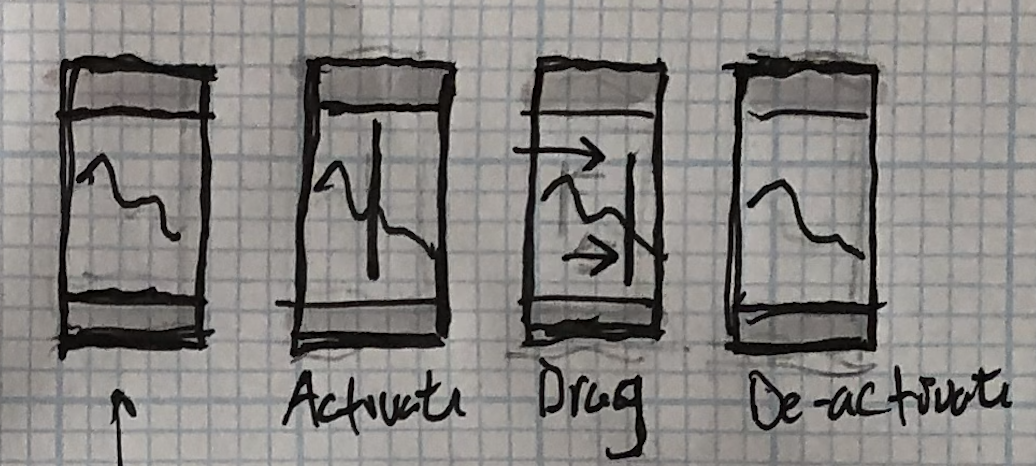 Activate Drag De-activate